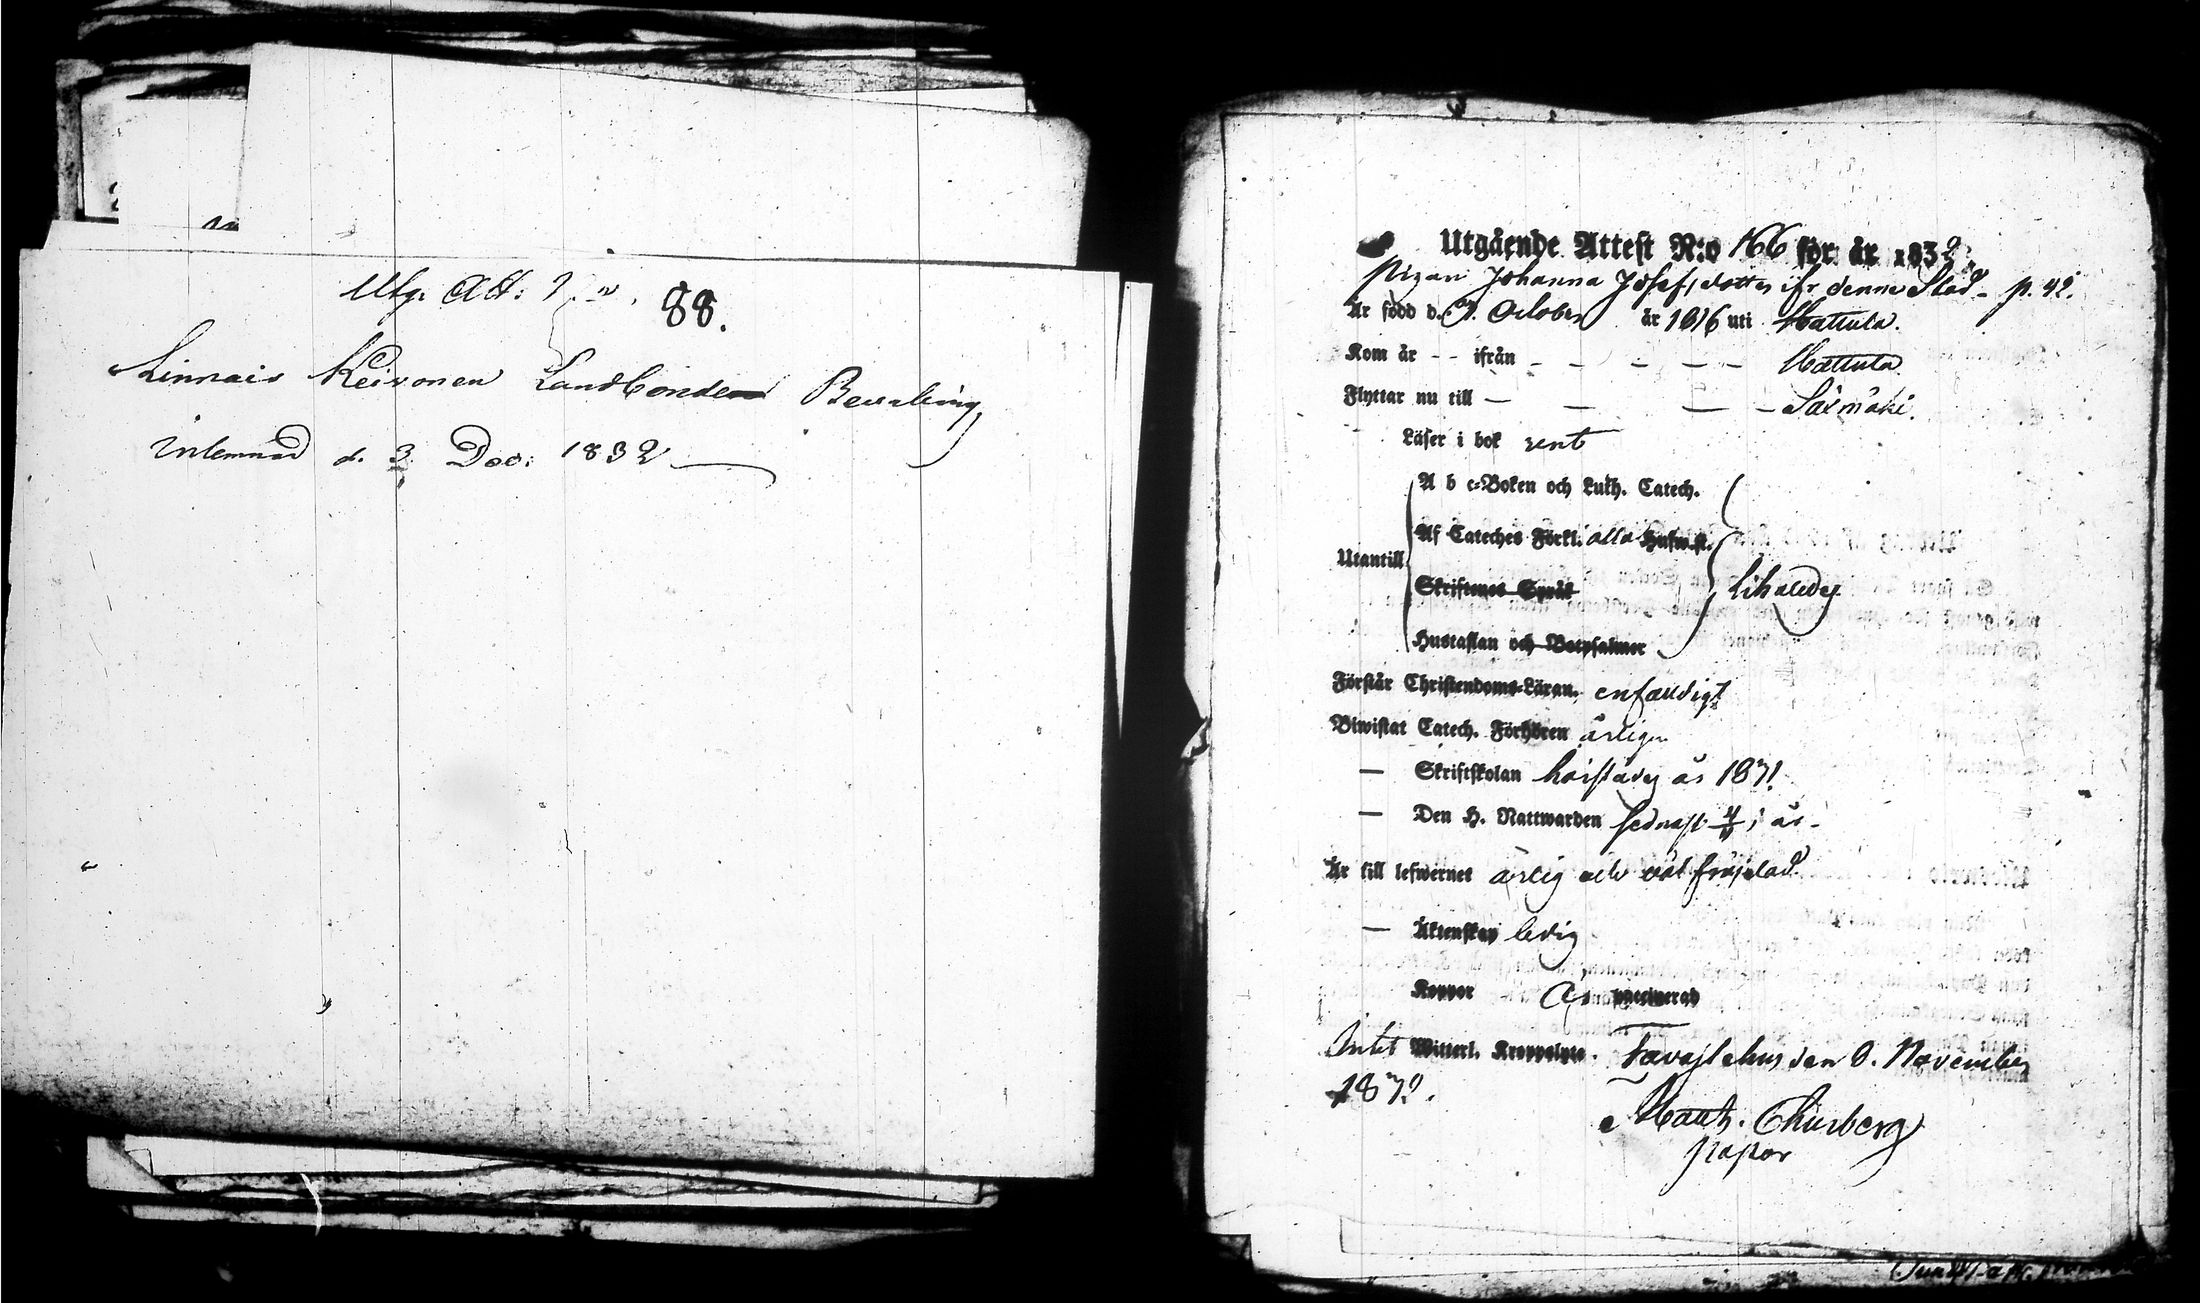 Utg. Att: 
88.
Linnais Keivonen Landbonde Bevilning
inlemnad d. 3 Dec: 1832
Utgående Attest N:o 166 för år 1832.
Pigan Johanna Josefsdotter ifr denna Stad - p. 42.
Är född d. 9. October år 1816 uti Hattula.
Kom år - - ifrån - - - - - Hattula
Flyttar nu till — — — - Säxmäki.
Läser i bok rent
A b c-Boken och Luth. Catech.
Af Cateches Förkl. alla Hufw.st.
Utantill
Skriftenes Språk
likaledes
Hustaflan och Botpsalmer
Förstår Christendoms-Läran. enfaldigt
Biwistat Catech. Förhören årligen
— Skriftskolan år 1831
— Den H. Nattwarden sednast i år.
Är till lefwernet ärlig och väl frejdad.
— Äktenskap ledig
Koppor Är vaccinerad
Intet Witterl. Kroppslyte. Tavastehus den 8. November
1832.
Maur. Churberg
Pastor